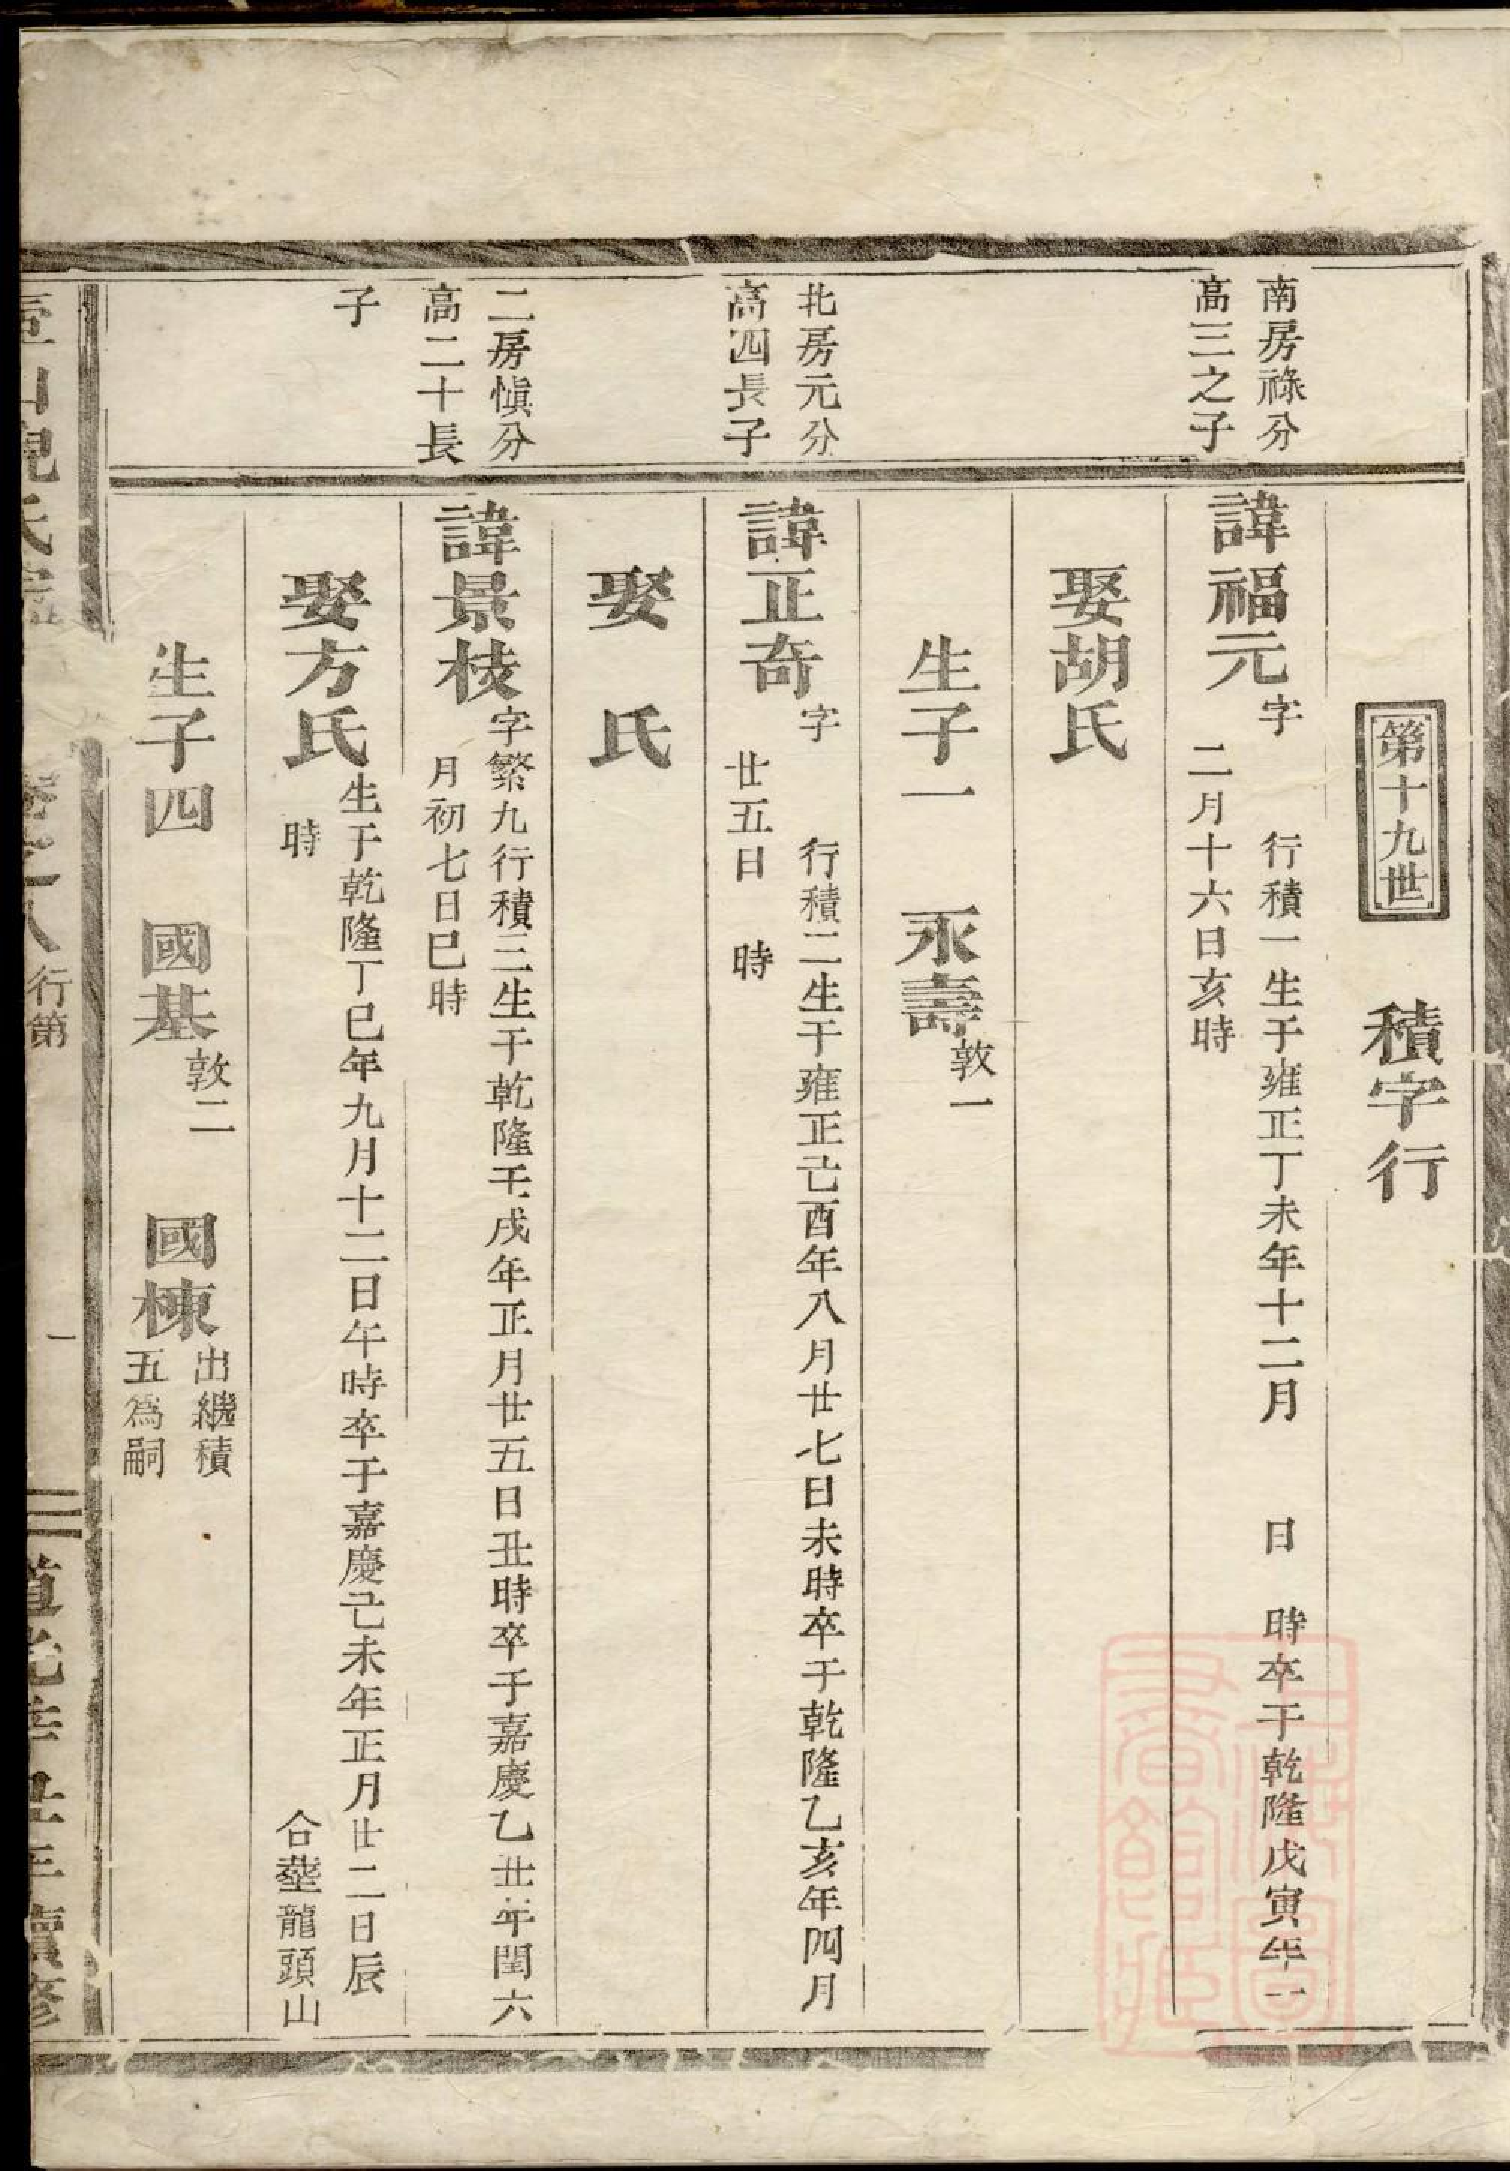 第十九世　積字行
南房祿分
高三之子
諱福元字　行積一生于雍正丁未年十二月　日　時卒于乾隆戊寅年十
二月十六日亥時
娶胡氏
生子一　永壽敦一
北房元分
高四長子
諱正奇字　行積二生于雍正己酉年八月廿七日未時卒于乾隆乙亥年四月
廿五日　時
娶　氏
二房愼分
高二十長
子
諱景枝字繁九行積三生于乾隆壬戌年正月廿五日丑時卒于嘉慶乙丑年閏六
月初七日巳時
娶方氏生于乾隆丁巳年九月十二日午時卒于嘉慶己未年正月廿二日辰
時　合塟龍頭山
生子四　國基敦二　國棟出繼積
五爲嗣
卷之八　行第　一
道光辛丑年續修
上海圖
書館藏